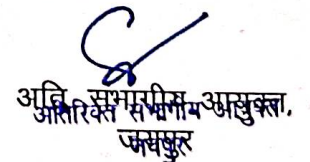 अति. संभागीय आयुक्त,
अतिरिक्त संभागीय आयुक्त,
जयपुर